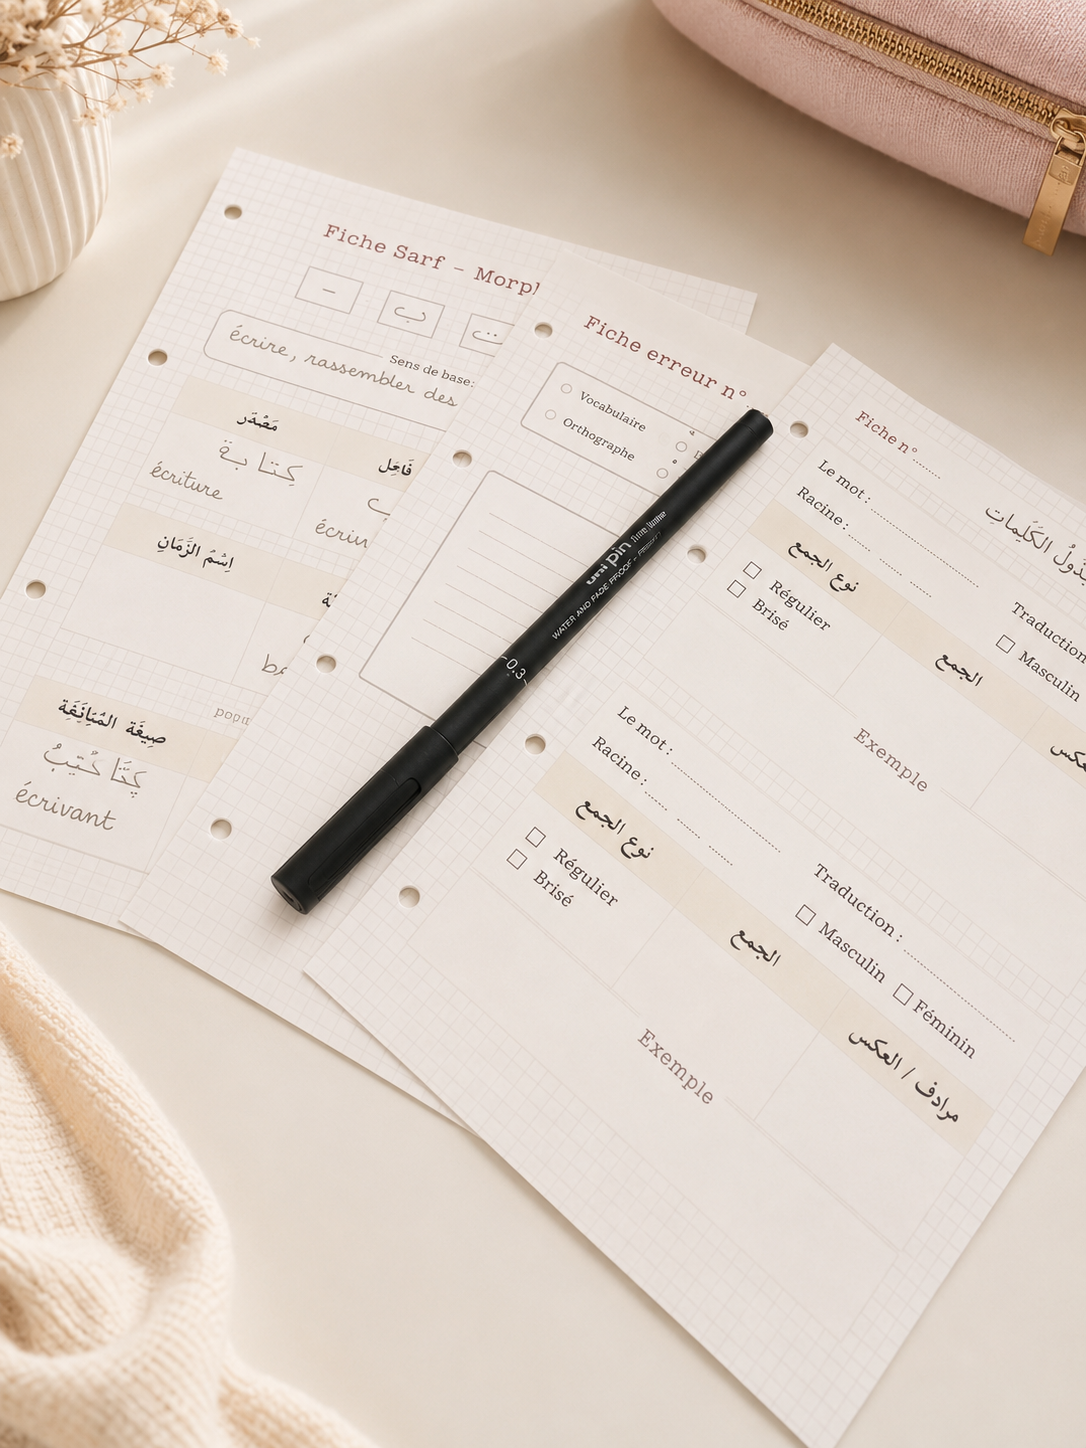 Fiche Sarf - Morph
ب
ت
Sens de base:
écrire, rassembler des
مَصْدَر
كِتابة
écriture
فَاعِل
écriv
اِسْمُ الزَّمَانِ
popu
écrivant
Fiche erreur n°
Vocabulaire
Orthographe
uni pin fine line
WATER AND FADE PROOF
0.3
Fiche n°
الكَلِمات
Le mot :
Racine :
Traduction
نوع الجمع
Régulier
Brisé
Masculin
الجمع
Exemple
Le mot :
Racine :
Traduction :
نوع الجمع
Régulier
Brisé
Masculin
Féminin
الجمع
مرادف / العكس
Exemple